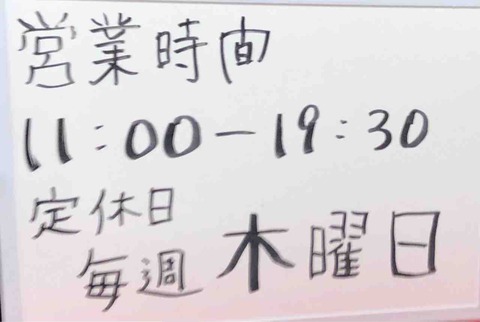 営業時間
11:00-19:30
定休日
毎週 木曜日